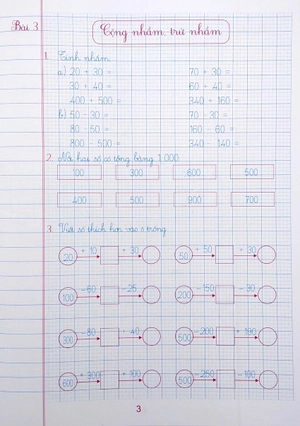 Bài 3
Cộng nhẩm, trừ nhẩm
1. Tính nhẩm
a) 20 + 30 = 70 + 30 =
30 + 40 = 60 + 40 =
400 + 500 = 340 + 160 =
b) 50 - 30 = 70 - 30 =
80 - 50 = 160 - 60 =
800 - 500 = 340 - 140 =
2. Nối hai số có tổng bằng 1 000
100 300 600 500
400 500 900 700
3. Viết số thích hợp vào ô trống
20 + 10 + 30 50 + 50 + 30
100 - 60 - 25 200 - 150 - 30
300 - 80 + 40 500 - 200 + 190
600 + 300 + 100 500 - 250 - 100
3